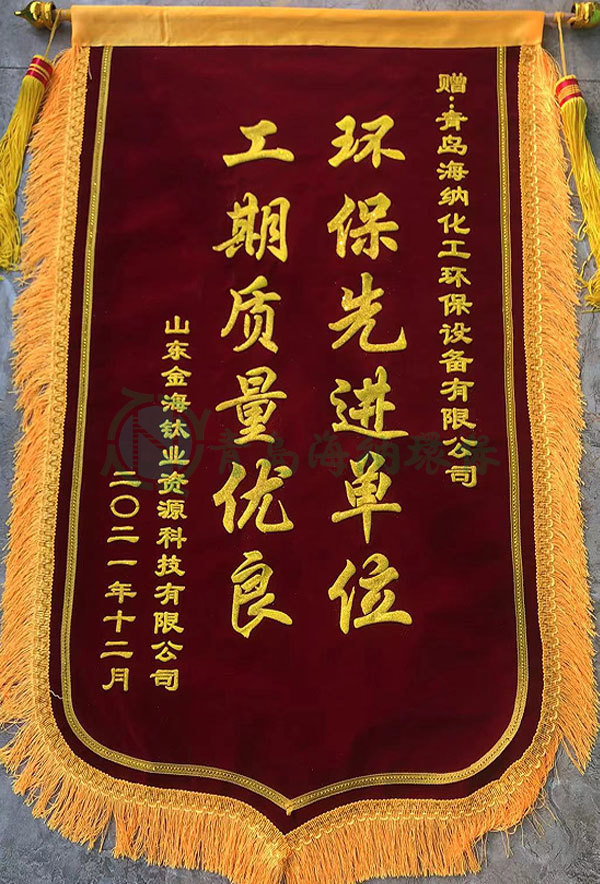 赠:青岛海纳化工环保设备有限公司
环保先进单位
工期质量优良
山东金海钛业资源科技有限公司
二〇二一年十二月
青岛海纳環保